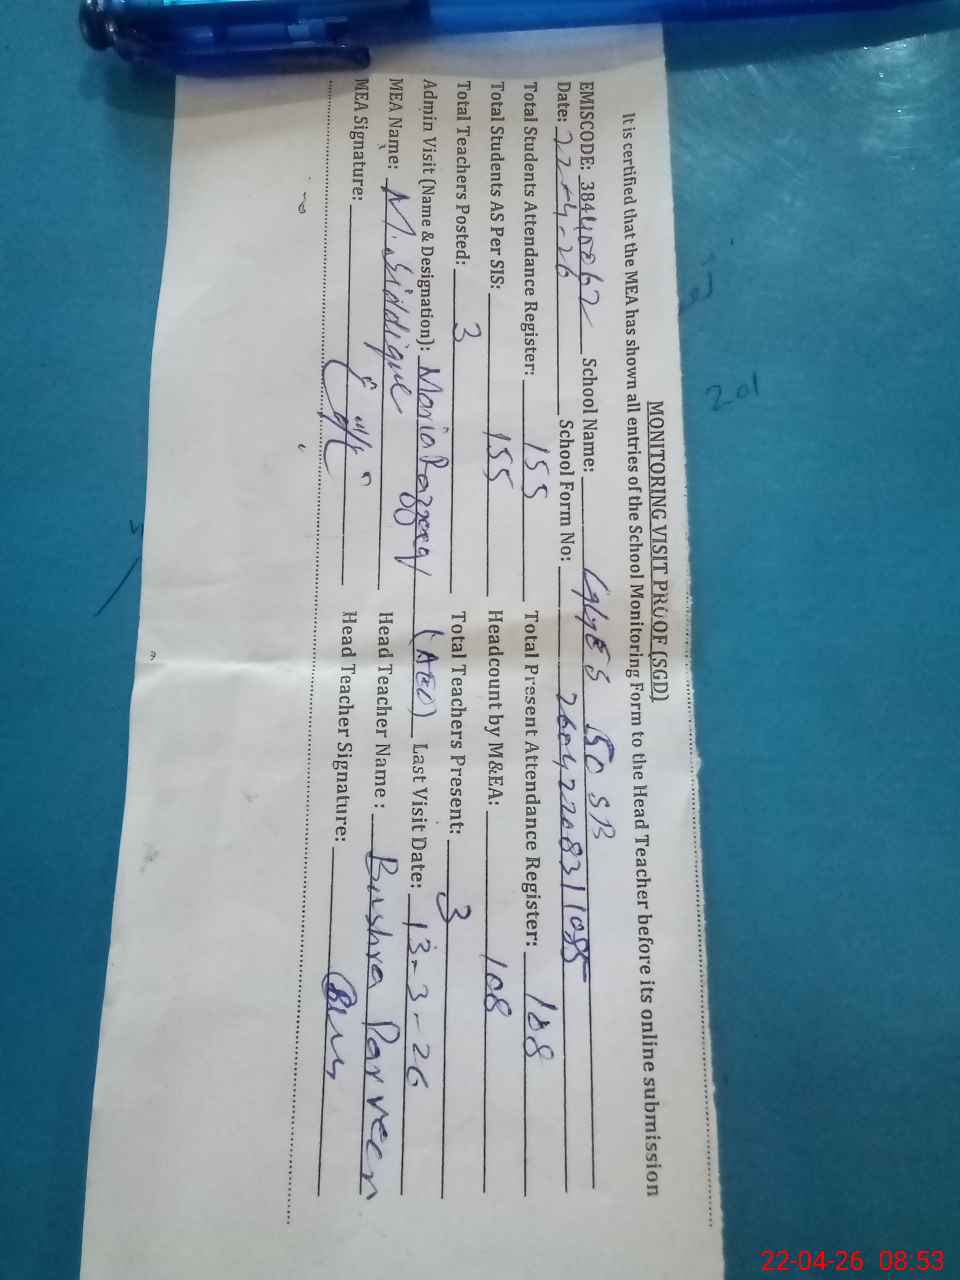 MONITORING VISIT PROOF (SGD)
It is certified that the MEA has shown all entries of the School Monitoring Form to the Head Teacher before its online submission
EMISCODE: 38440062 School Name: GGHSS 150 SB
Date: 22-4-26 School Form No: 26042208311085
Total Students Attendance Register: 155 Total Present Attendance Register: 108
Total Students AS Per SIS: 155 Headcount by M&EA: 108
Total Teachers Posted: 3 Total Teachers Present: 3
Admin Visit (Name & Designation): Maria Razzaq (AEO) Last Visit Date: 13-3-26
MEA Name: M. Siddique Head Teacher Name : Bushra Parveen
MEA Signature: Head Teacher Signature:
201
22-04-26 08:53